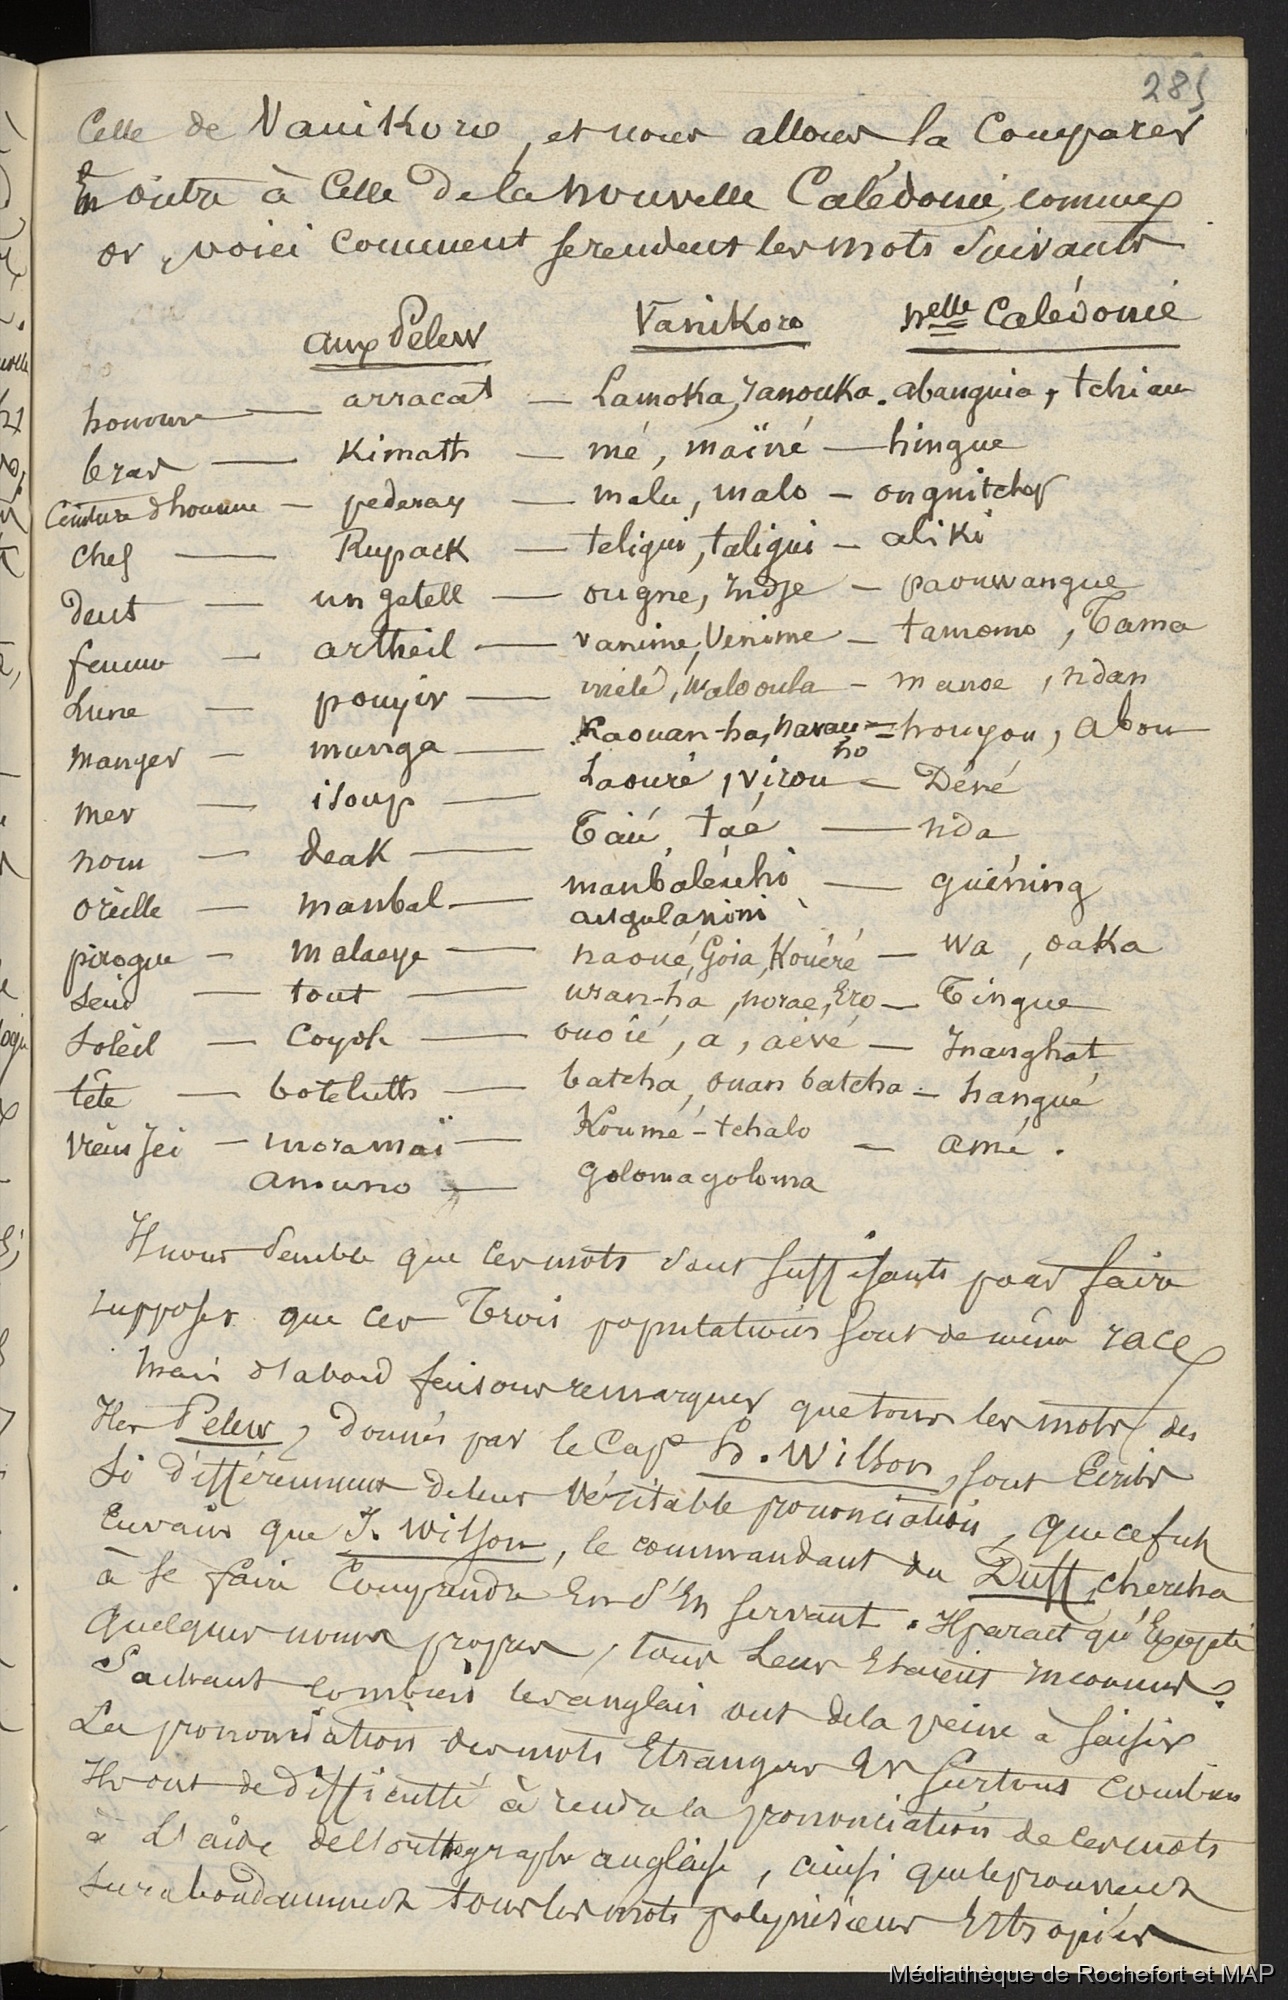 285
Celle de Vanikoro, et nous allons la Comparer
En outre à Celle de la nouvelle Calédonie, comme
or, voici Comment se rendent les mots Suivants
aux Pelew Vanikoro nelle Calédonie
homme — arracat — Lamoka, ranouka. abanguia, tchiau
bras — Kimath — mé, maïné — hingue
Ceinture d'homme — pederay — malu, malo — onguitchop
Chef — Rupack — teligui, taligui — aliki
dent — ungetell — ougné, indje — paouwangue
femme — artheil — vanime, Venime — tamomo, Tama
Lune — pouyir — mélé, Walooula — manoe, ndan
manger — munga — Kaouan-ha, navau-ho — houyou, abou
mer — isoup — Laouré, virou — Déné
nom — deak — Taïé, taé — nda
oreille — manbal — manbaleuhi — guiening
angulanini
pirogue — malaeye — naoué, Goia, Kouéré — wa, oaka
Sein — tout — uran-ha, norae, Ero — Tingue
Soleil — Coyoh — ouoïé, a, aévé — Inanghat
tête — boteluth — batcha, ouan batcha — hangué
viens ici — moramaï — Koumé-tchalo — amé.
amuno — golomagoloma
Il nous Semble que ces mots sont Suffisants pour faire
supposer que ces Trois populations sont de même race
Mais d'abord faisons remarquer que tous les mots des
Iles Pelew, donnés par le Cape H. Wilson, sont Ecrits
Si différemment de leur Véritable prononciation, que ce fut
En vain que J. Wilson, le commandant du Duff, chercha
à Se faire Comprendre En S'En servant. Il parait qu'Excepté
quelques noms propres, tous Leur Etaient inconnus.
Sachant combien les anglais ont de la peine à Saisir
La prononciation des mots Etrangers Et Surtout combien
Ils ont de difficulté à rendre la prononciation de ces mots
à L'aide de l'orthographe anglaise, ainsi que le prouvent
Surabondamment tous les mots polynésiens Estropiés
Médiathèque de Rochefort et MAP